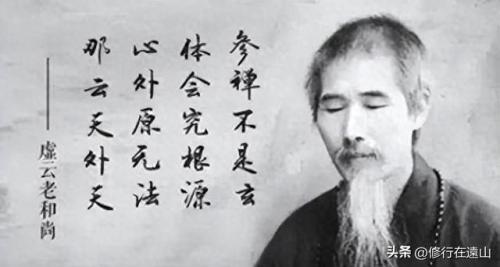 参禅不是玄
体会究根源
心外原无法
那云天外天
——虚云老和尚
头条 @修行在遠山